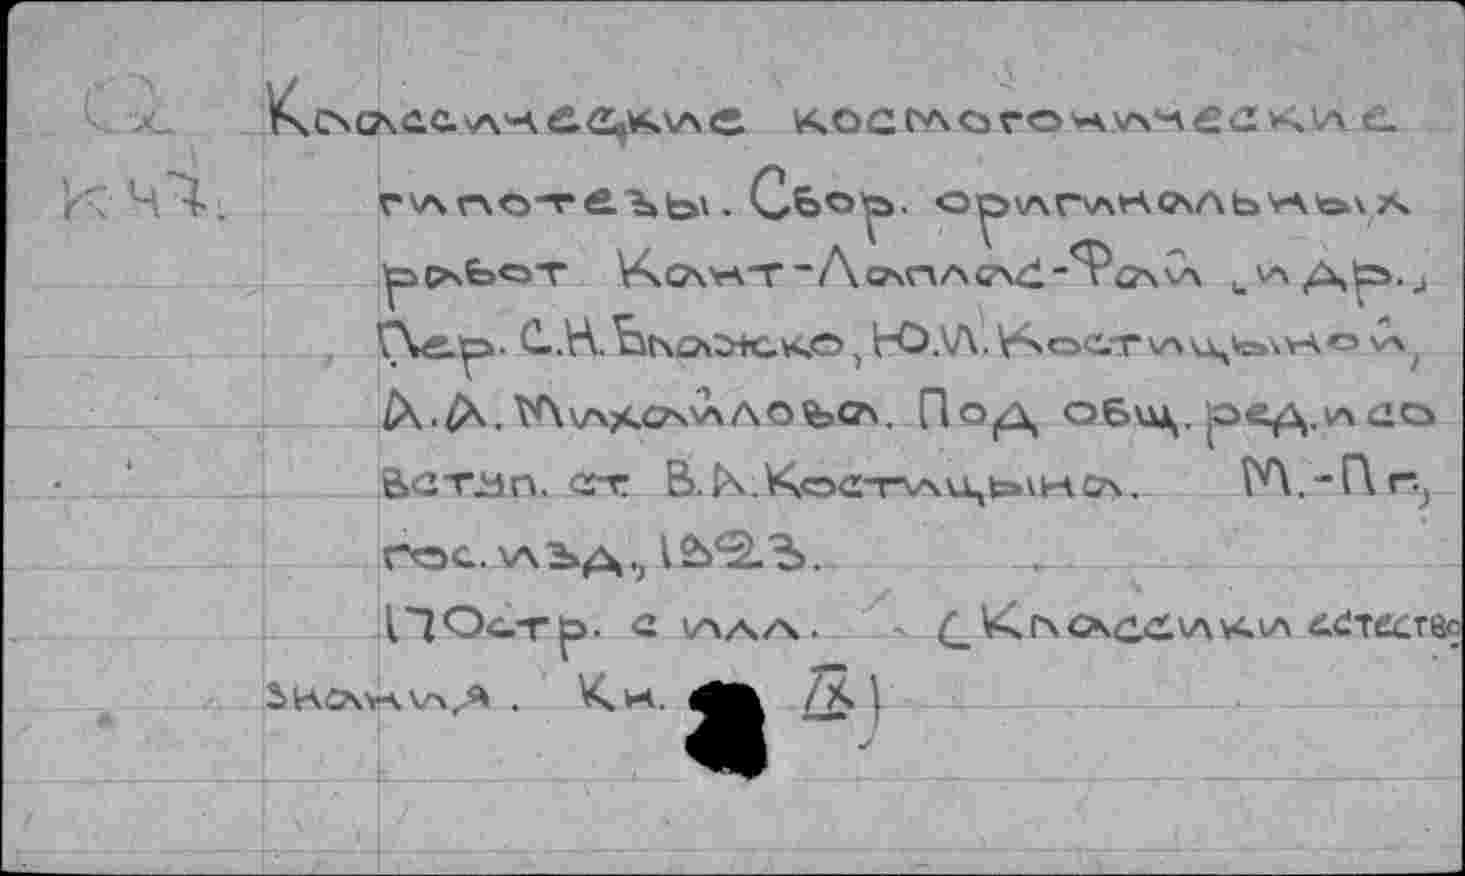 Классические космогонические
К47.
гипотезы. Сбор. оригинальных
работ Кант-Лаплас-Фай и др.,
Пер. С.Н.Блажко, Ю.И.Костицыной,
А.А.Михайлова. Под общ. ред. и со
вступ. ст. В.А.Костицына. М.-Пг.,
гос. изд., 1923.
170стр. с илл. (Классики естество
знания. Кн. )